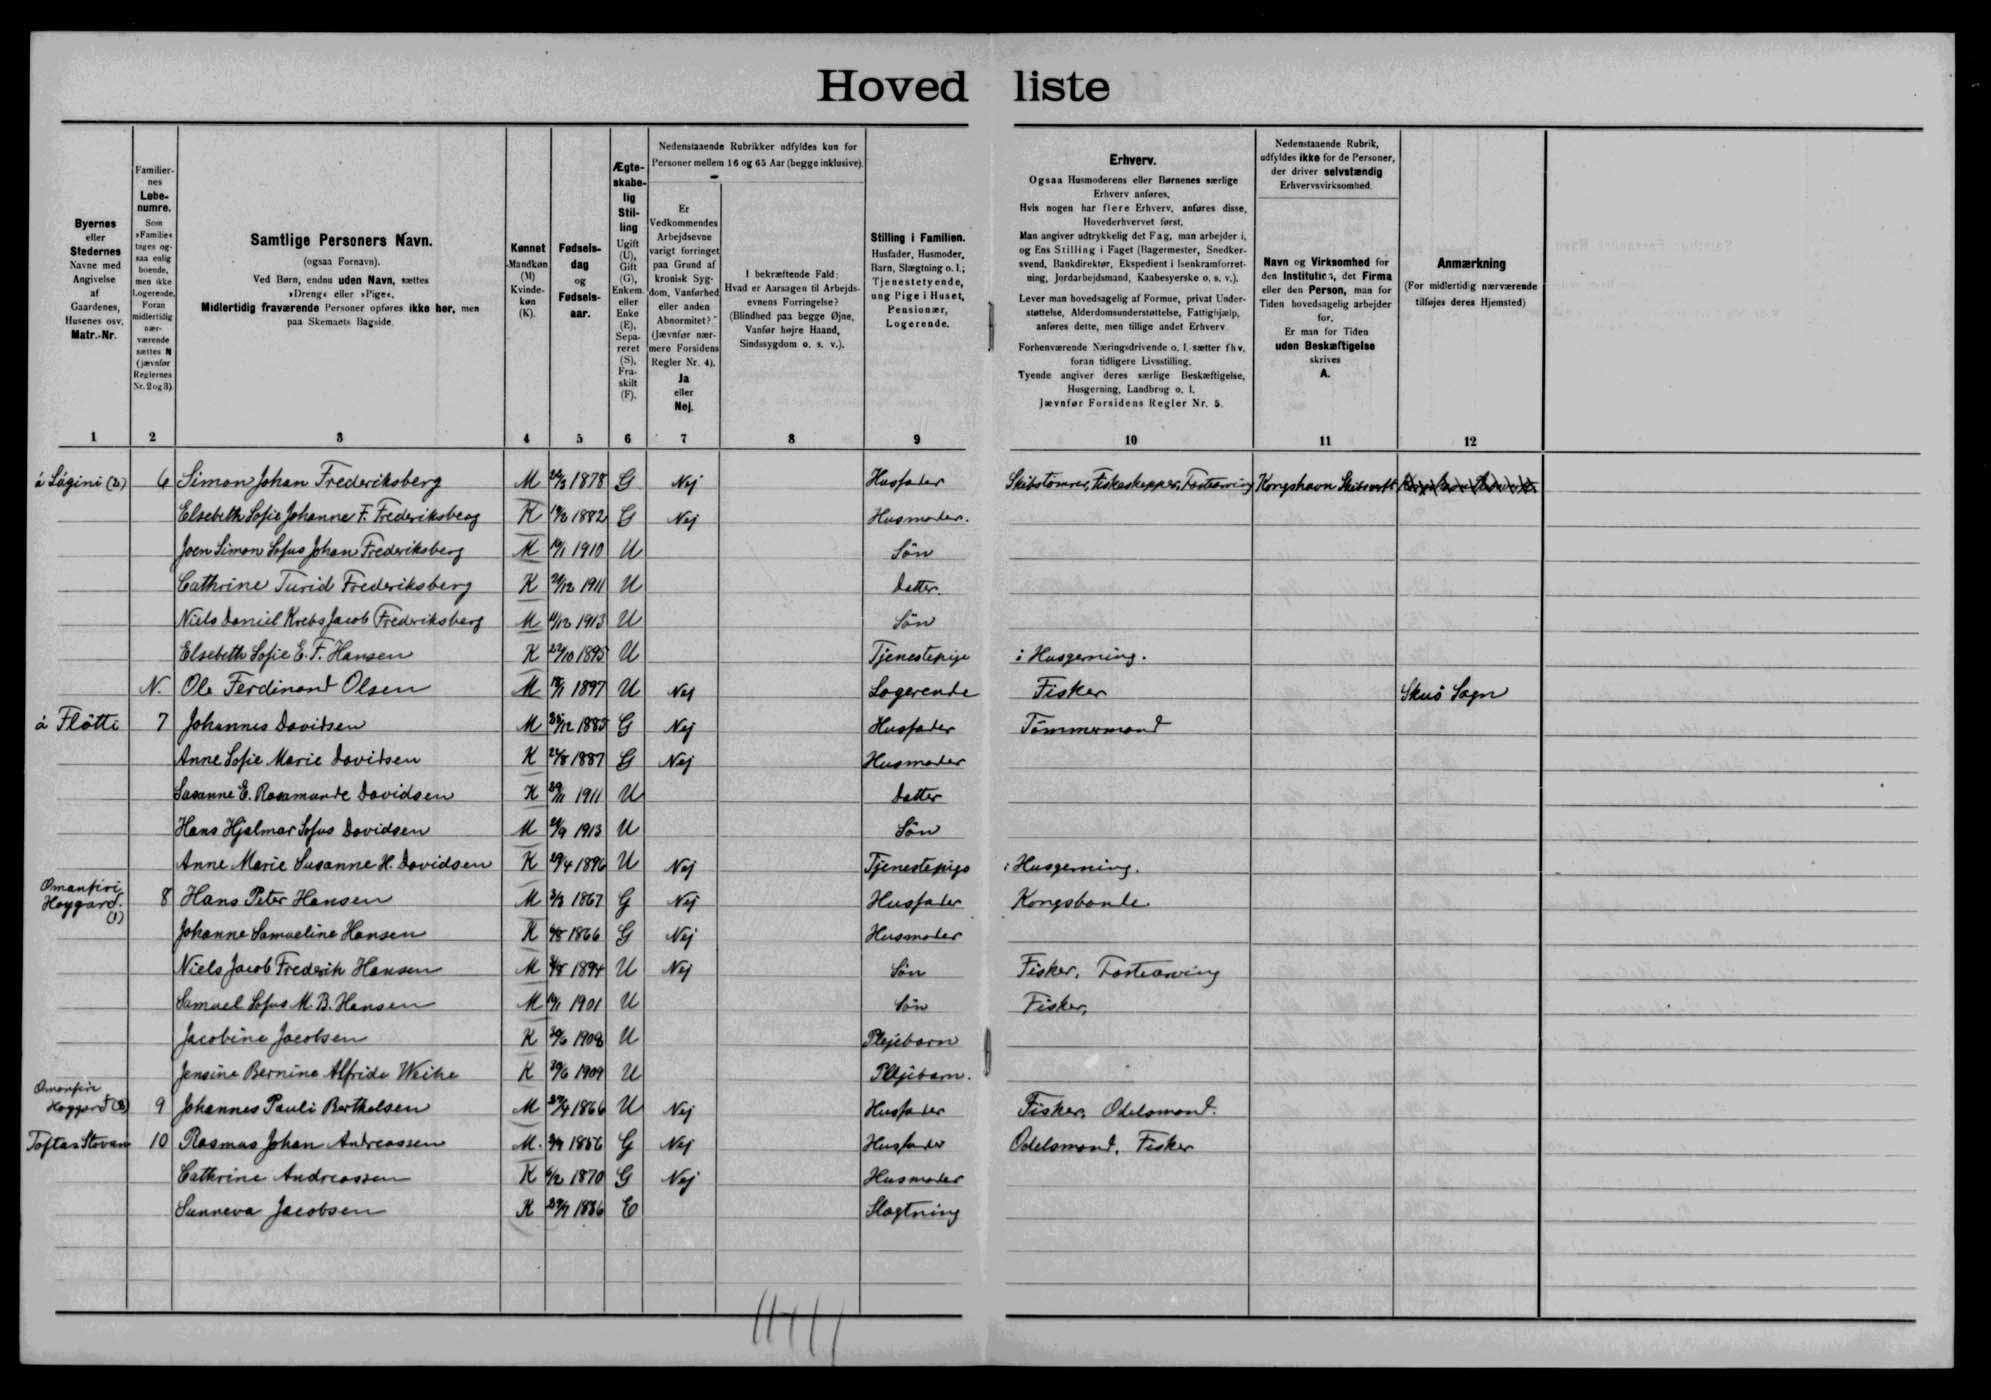 Hovedliste
Byernes
eller
Stedernes
Navne med
Angivelse
af
Gaardenes,
Husenes osv.
Matr.-Nr.
Familier-
nes
Løbe-
numre.
Som
»Familie«
tages og-
saa enlig
boende,
men ikke
Logerende.
Foran
midlertidig
nær-
værende
sættes N
(jævnfør
Reglernes
Nr. 2 og 3).
Samtlige Personers Navn.
(ogsaa Fornavn).
Ved Børn, endnu uden Navn, sættes
»Dreng« eller »Pige«.
Midlertidig fraværende Personer opføres ikke her, men
paa Skemaets Bagside.
Kønnet
Mandkøn
(M)
Kvinde-
køn
(K).
Fødsels-
dag
og
Fødsels-
aar.
Ægte-
skabe-
lig
Stil-
ling
Ugift
(U),
Gift
(G),
Enkem.
eller
Enke
(E),
Sepa-
reret
(S),
Fra-
skilt
(F).
Nedenstaaende Rubrikker udfyldes kun for
Personer mellem 16 og 65 Aar (begge inklusive).
Er
Vedkommendes
Arbejdsevne
varigt forringet
paa Grund af
kronisk Syg-
dom, Vanførhed
eller anden
Abnormitet?
(Jævnfør nær-
mere Forsidens
Regler Nr. 4).
Ja
eller
Nej.
I bekræftende Fald:
Hvad er Aarsagen til Arbejds-
evnens Forringelse?
(Blindhed paa begge Øjne,
Vanfør højre Haand,
Sindssygdom o. s. v.).
Stilling i Familien.
Husfader, Husmoder,
Barn, Slægtning o. l.;
Tjenestetyende,
ung Pige i Huset,
Pensionær,
Logerende.
Erhverv.
Ogsaa Husmoderens eller Børnenes særlige
Erhverv anføres.
Hvis nogen har flere Erhverv, anføres disse,
Hovederhvervet først.
Man angiver udtrykkelig det Fag, man arbejder i,
og Ens Stilling i Faget (Bagermester, Snedker-
svend, Bankdirektør, Ekspedient i Isenkramforret-
ning, Jordarbejdsmand, Kaabesyerske o. s. v.).
Lever man hovedsagelig af Formue, privat Under-
støttelse, Alderdomsunderstøttelse, Fattighjælp,
anføres dette, men tillige andet Erhverv.
Forhenværende Næringsdrivende o. l. sætter fhv.
foran tidligere Livsstilling.
Tyende angiver deres særlige Beskæftigelse,
Husgerning, Landbrug o. l.
Jævnfør Forsidens Regler Nr. 5.
Nedenstaaende Rubrik,
udfyldes ikke for de Personer,
der driver selvstændig
Erhvervsvirksomhed.
Navn og Virksomhed for
den Institution, det Firma
eller den Person, man for
Tiden hovedsagelig arbejder
for.
Er man for Tiden
uden Beskæftigelse
skrives
A.
Anmærkning
(For midlertidig nærværende
tilføjes deres Hjemsted)
1 2 3 4 5 6 7 8 9 10 11 12
á Lágini (2) 6 Simon Johan Frederiksberg M 1878 G Nej Husfader Skibstömrer, Fiskeskipper, Fæstearving Kongshavn
Elsebeth Sofie Johanne F. Frederiksberg K 1882 G Nej Husmoder.
Joen Simon Sofus Johan Frederiksberg M 1910 U Sön
Cathrine Turid Frederiksberg K 1911 U Datter.
Niels Daniel Krebs Jacob Frederiksberg M 1913 U Sön
Elsebeth Sofie E. F. Hansen K 22/10 1895 U Tjenestepige i Husgerning.
N. Ole Ferdinand Olsen M 1897 U Nej Logerende Fisker Skuö Sogn
á Flötti 7 Johannes Davidsen M 1885 G Nej Husfader Tömmermand
Anne Sofie Marie Davidsen K 1887 G Nej Husmoder
Susanne E. Rosamunde Davidsen K 1911 U Datter
Hans Hjalmar Sofus Davidsen M 1913 U Sön
Anne Marie Susanne H. Davidsen K 1896 U Nej Tjenestepige i Husgerning.
Omanfiri
Hoygard. (1) 8 Hans Peter Hansen M 1867 G Nej Husfader Kongsbonde
Johanne Samueline Hansen K 1866 G Nej Husmoder
Niels Jacob Frederik Hansen M 1894 U Nej Sön Fisker, Fæstearving
Samuel Sofus M. B. Hansen M 1901 U Sön Fisker,
Jacobine Jacobsen K 1908 U Plejebarn
Jensine Bernine Alfride Weihe K 1909 U Plejebarn.
Omanfiri
Hoygard (2) 9 Johannes Pauli Berthelsen M 1866 U Nej Husfader Fisker, Odelsmand.
Toftar Stovan 10 Rasmus Johan Andreassen M. 1856 G Nej Husfader Odelsmand, Fisker
Cathrine Andreassen K 1870 G Nej Husmoder
Sunneva Jacobsen K 1836 E Slægtning